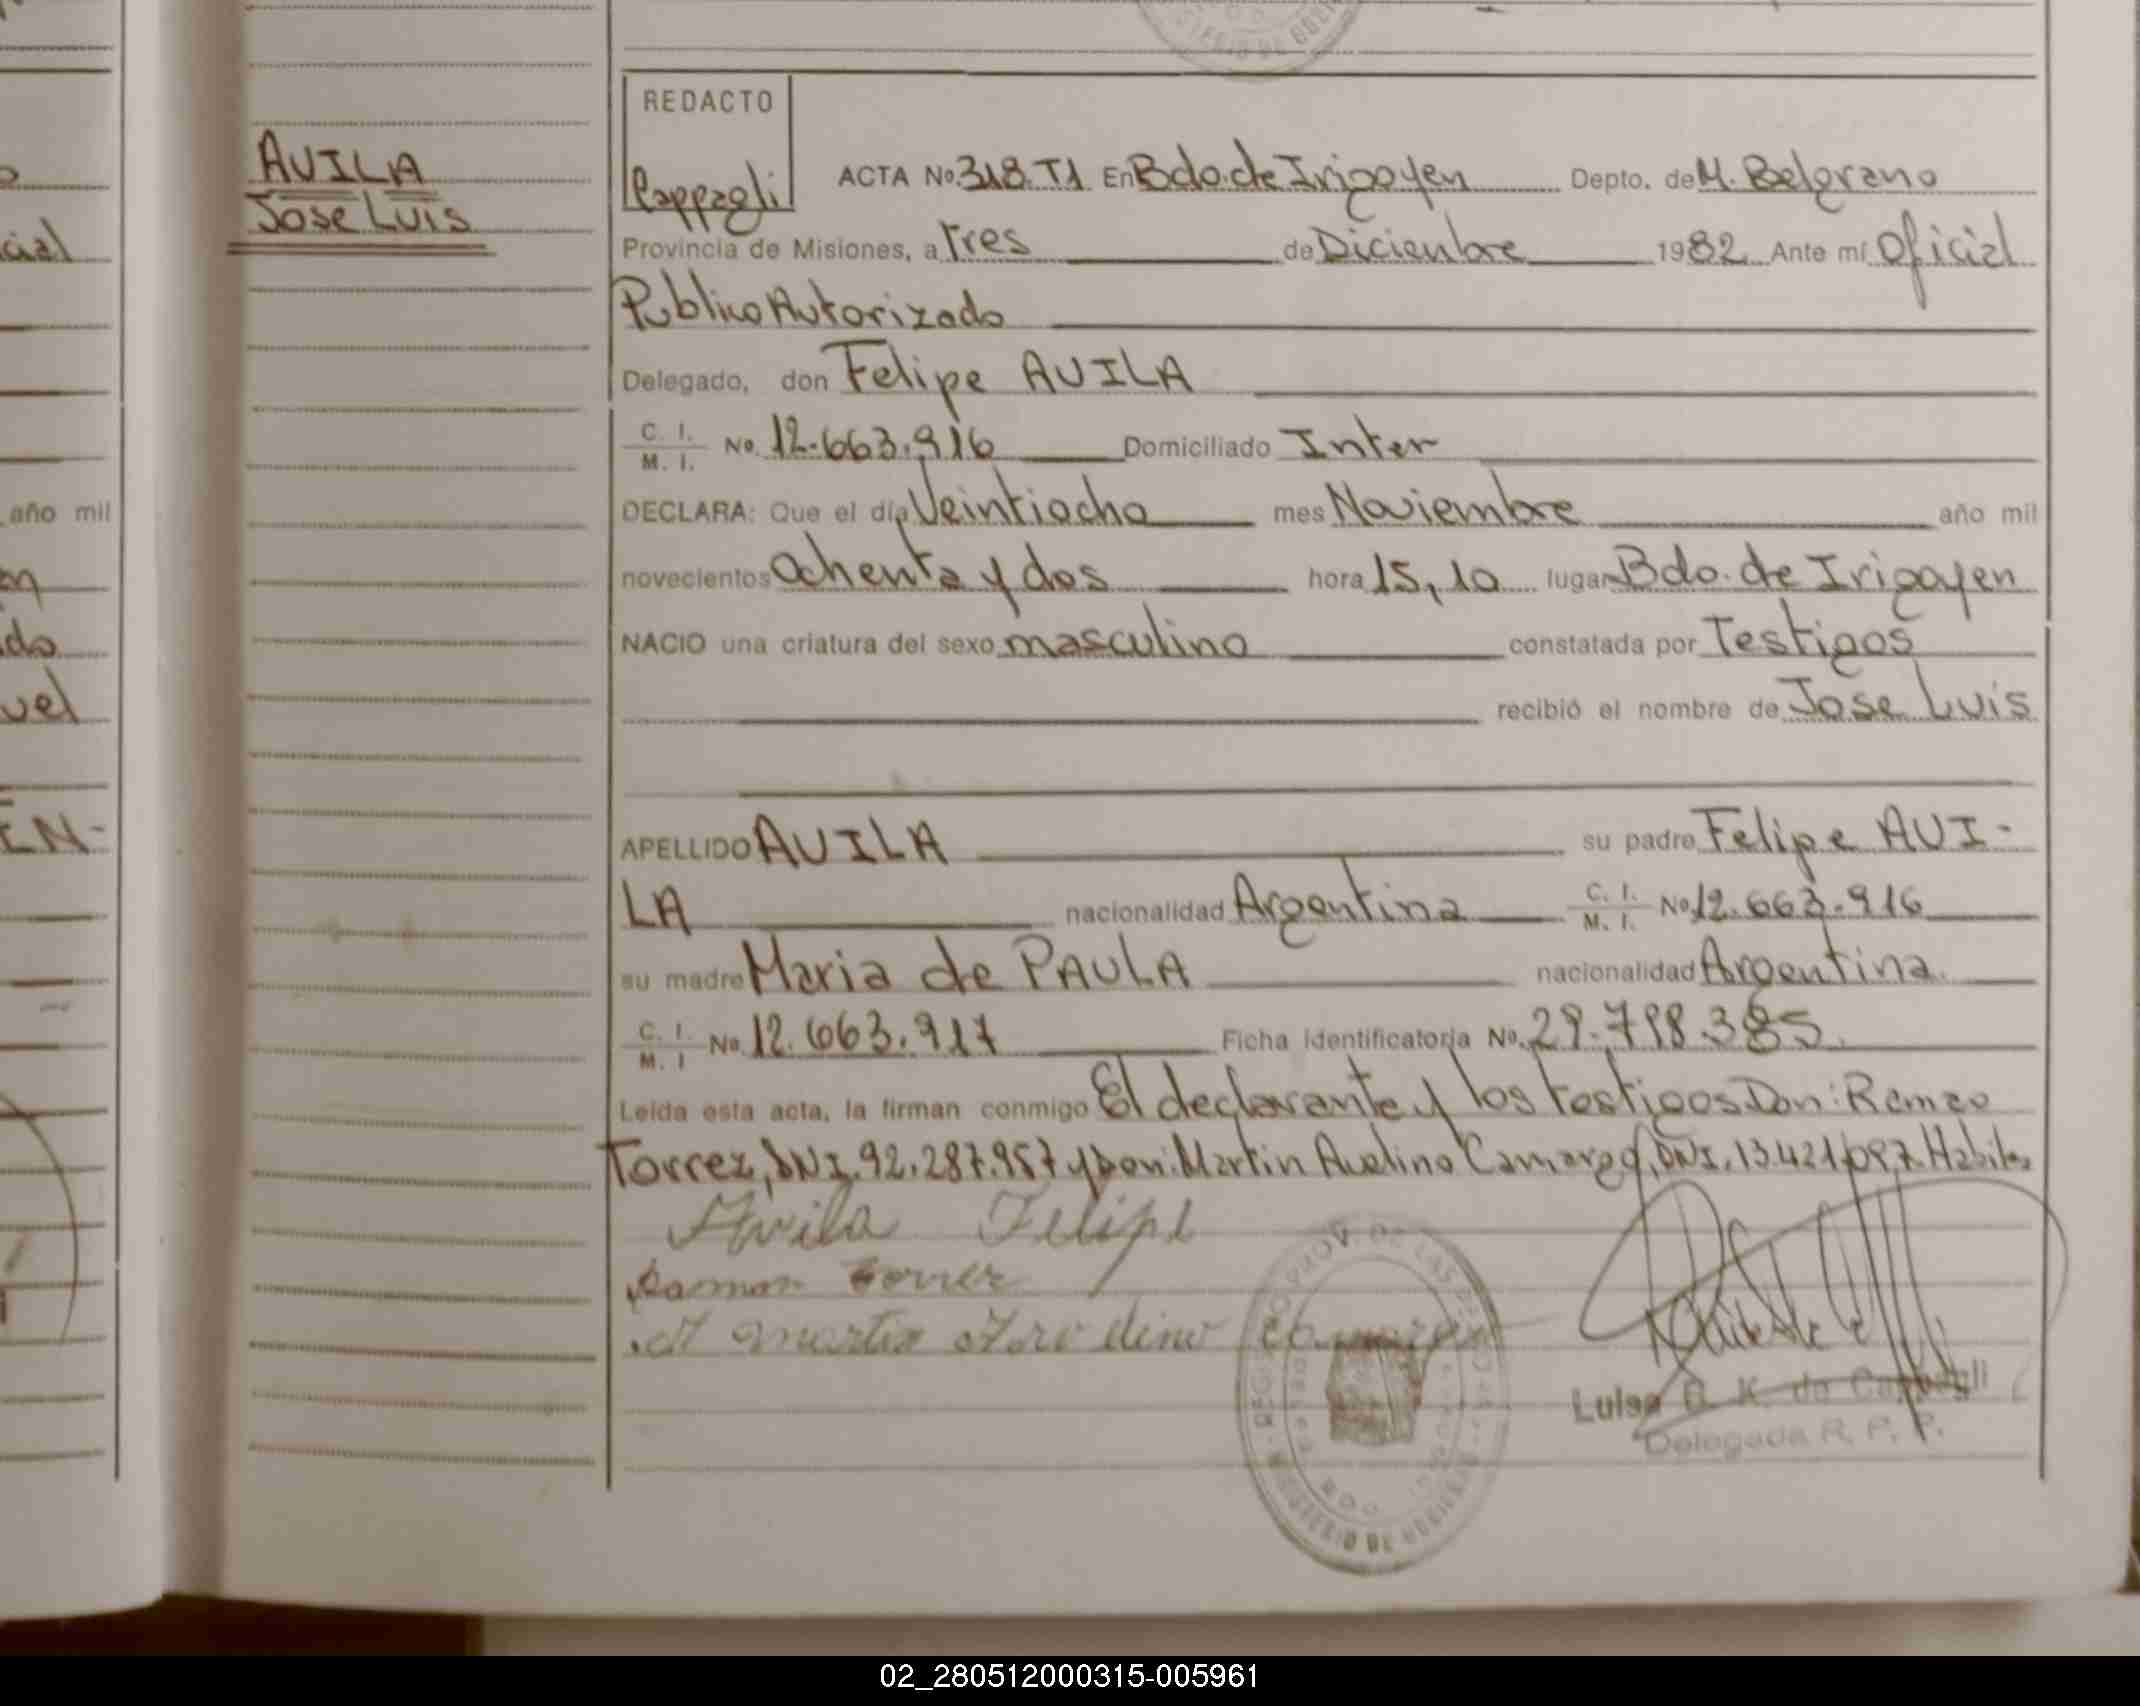 AVILA
Jose Luis
REDACTO
Cappagli
ACTA No. 318. T1 En Bdo. de Irigoyen Depto. de M. Belgrano
Provincia de Misiones, a Tres de Diciembre 1982 Ante mí Oficial
Publico Autorizado
Delegado, don Felipe AVILA
C. I.
M. I. No. 12.663.916 Domiciliado Inter
DECLARA: Que el día Veintiocho mes Noviembre año mil
novecientos Ochenta y dos hora 15,10 lugar Bdo. de Irigoyen
NACIO una criatura del sexo masculino constatada por Testigos
recibió el nombre de Jose Luis
APELLIDO AVILA su padre Felipe AVI-
LA nacionalidad Argentina C. I. M. I. No. 12.663.916
su madre Maria de PAULA nacionalidad Argentina.
C. I.
M. I No. 12.663.917 Ficha identificatoria No. 29.798.385.
Leída esta acta, la firman conmigo El declarante y los testigos Don: Ramao
Torrez, DNI. 92.287.957 y Don: Martin Avelino Camargo, DNI. 13.421.097. Habiles
Avila Felipe
Ramon Torrez
Martin
Luisa G. K. de Cappagli
Delegada R. P. P.
MINISTERIO DE GOBIERNO
año mil
cial
do
vel
EN-
02_280512000315-005961